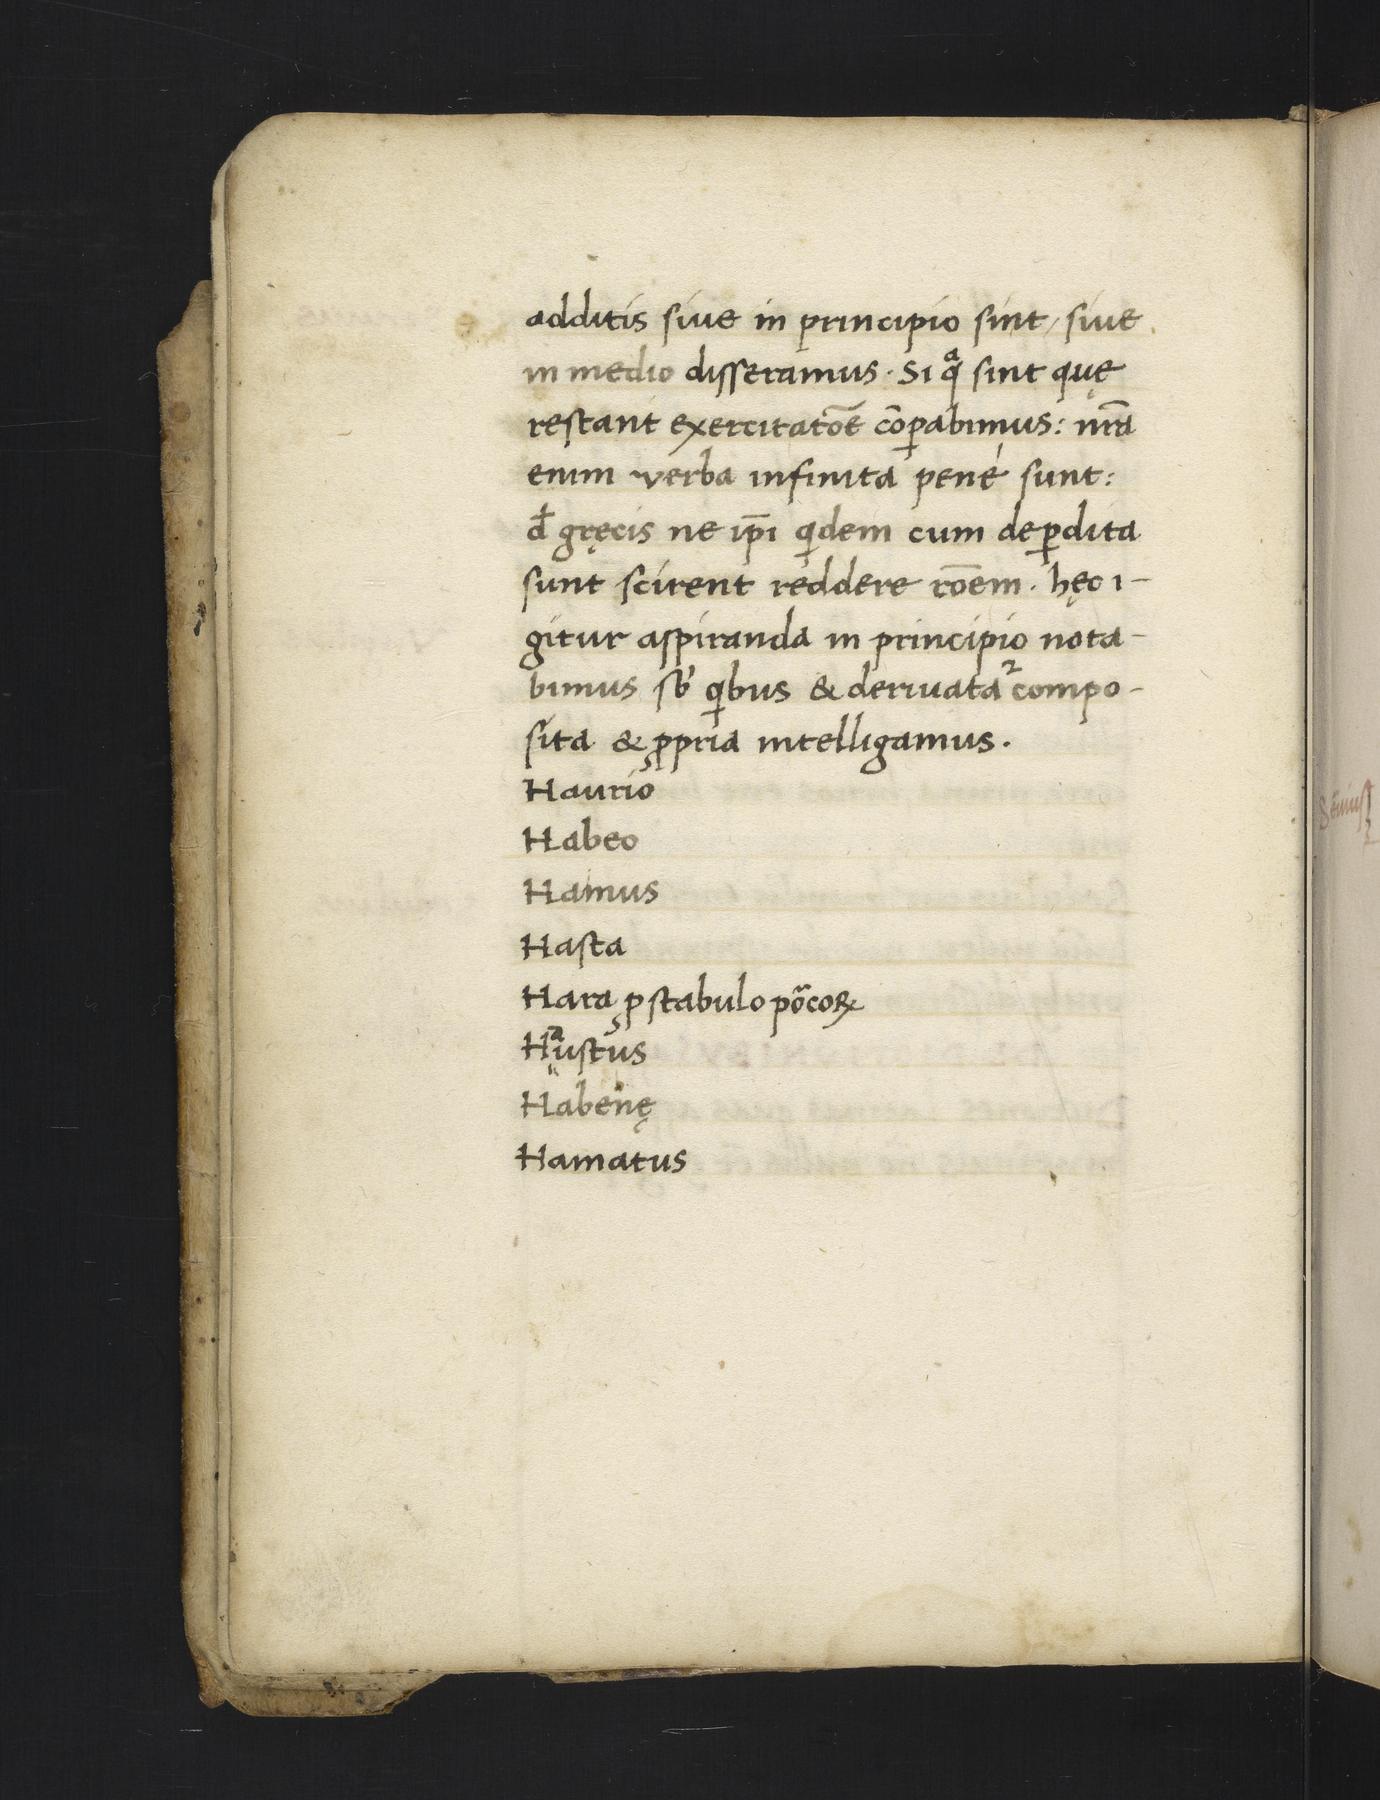 additis siue in principio sint, siue
in medio disseramus. Si qͣ sint quę
restant exercitatōe cōꝑabimus: nr̄a
enim verba infinita pene sunt:
đ gręcis ne ip̄i qdem cum deꝑdita
sunt scirent reddere rōem. hęc i-
gitur aspiranda in principio nota-
bimus sb̾ qbus & deriuata ² compo-
sita & ꝓpria intelligamus.
Haurio
Habeo
Hamus
Hasta
Hara ꝓ stabulo porͨcoꝝ
Haustus
Habenę
Hamatus